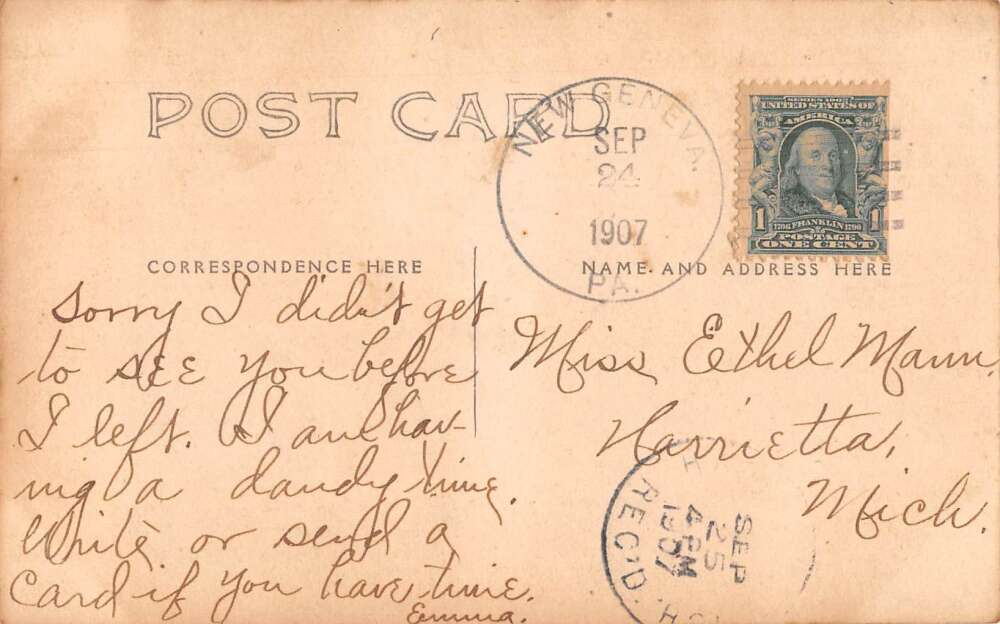 POST CARD
NEW GENEVA.
SEP
24
1907
PA.
SERIES 1902
UNITED STATES OF
AMERICA
1 1
1706 FRANKLIN 1790
POSTAGE
ONE CENT
CORRESPONDENCE HERE
NAME AND ADDRESS HERE
Sorry I didn't get
to see you before
I left. I am hav-
ing a dandy time.
Write or send a
card if you have time.
Emma.
Miss Ethel Mann,
Harrietta,
Mich.
SEP
25
4 PM
1907
REC'D.